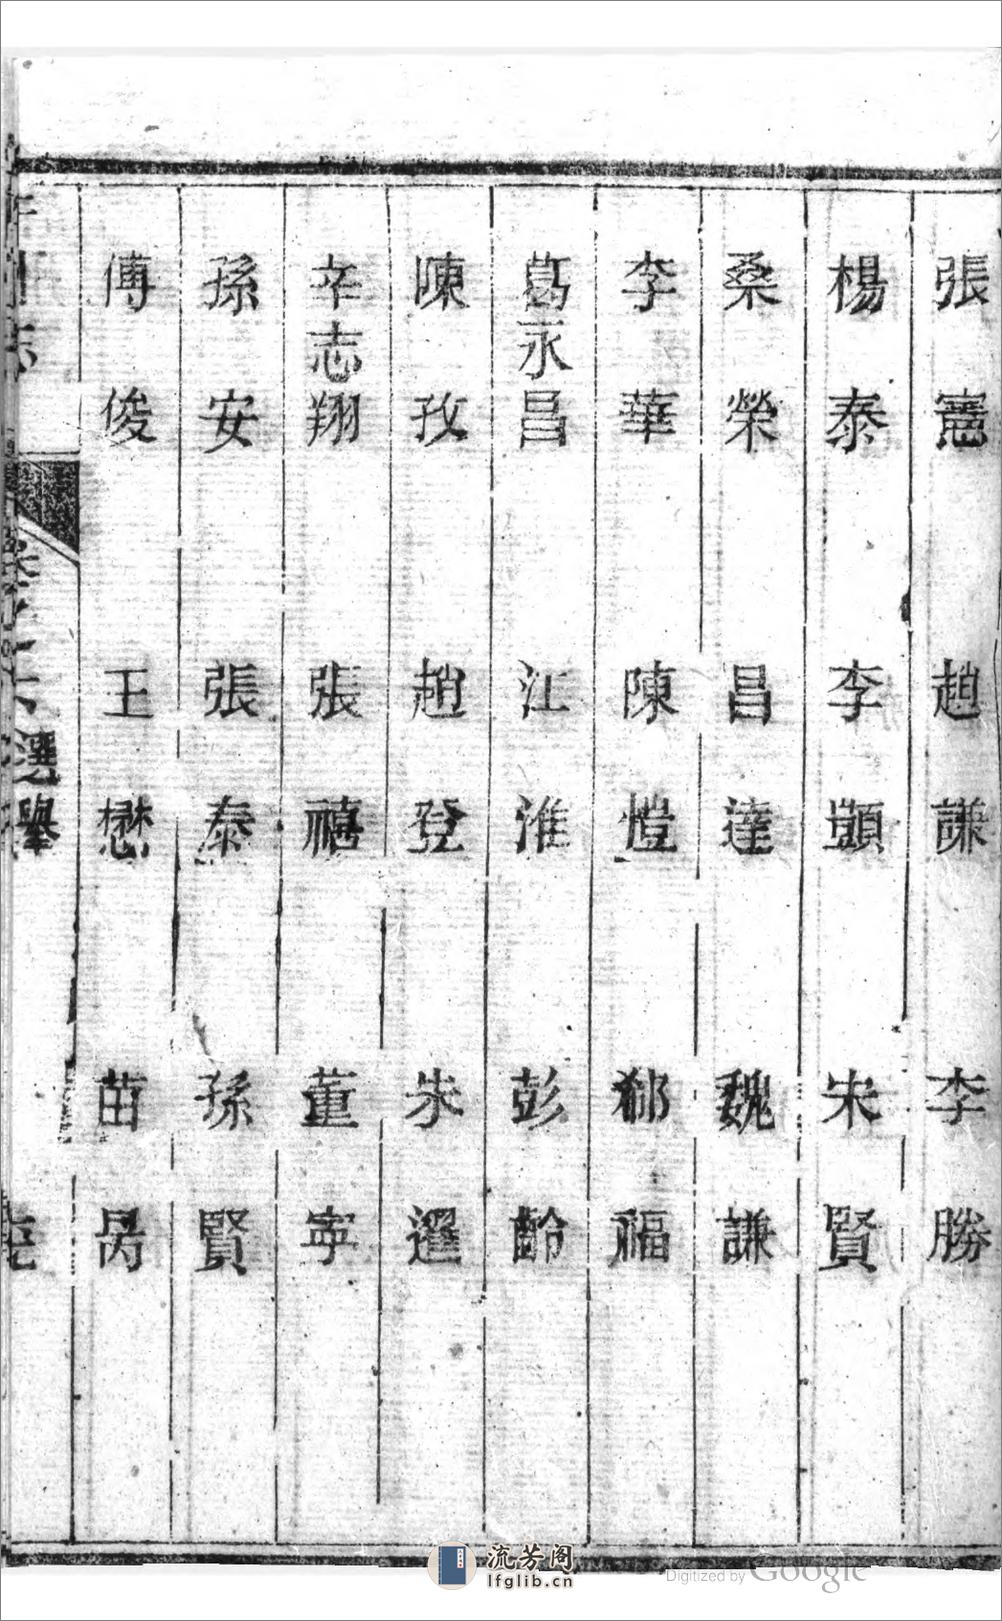 張憲　趙謙　李勝
楊泰　李顕　宋賢
桑榮　昌達　魏謙
李華　陳愷　郁福
葛永昌　江淮　彭齡
陳孜　趙登　朱暹
辛志翔　張禧　董寧
孫安　張泰　孫賢
傅俊　王懋　苗昺
選舉
流芳阁
lfglib.cn
Digitized by Google